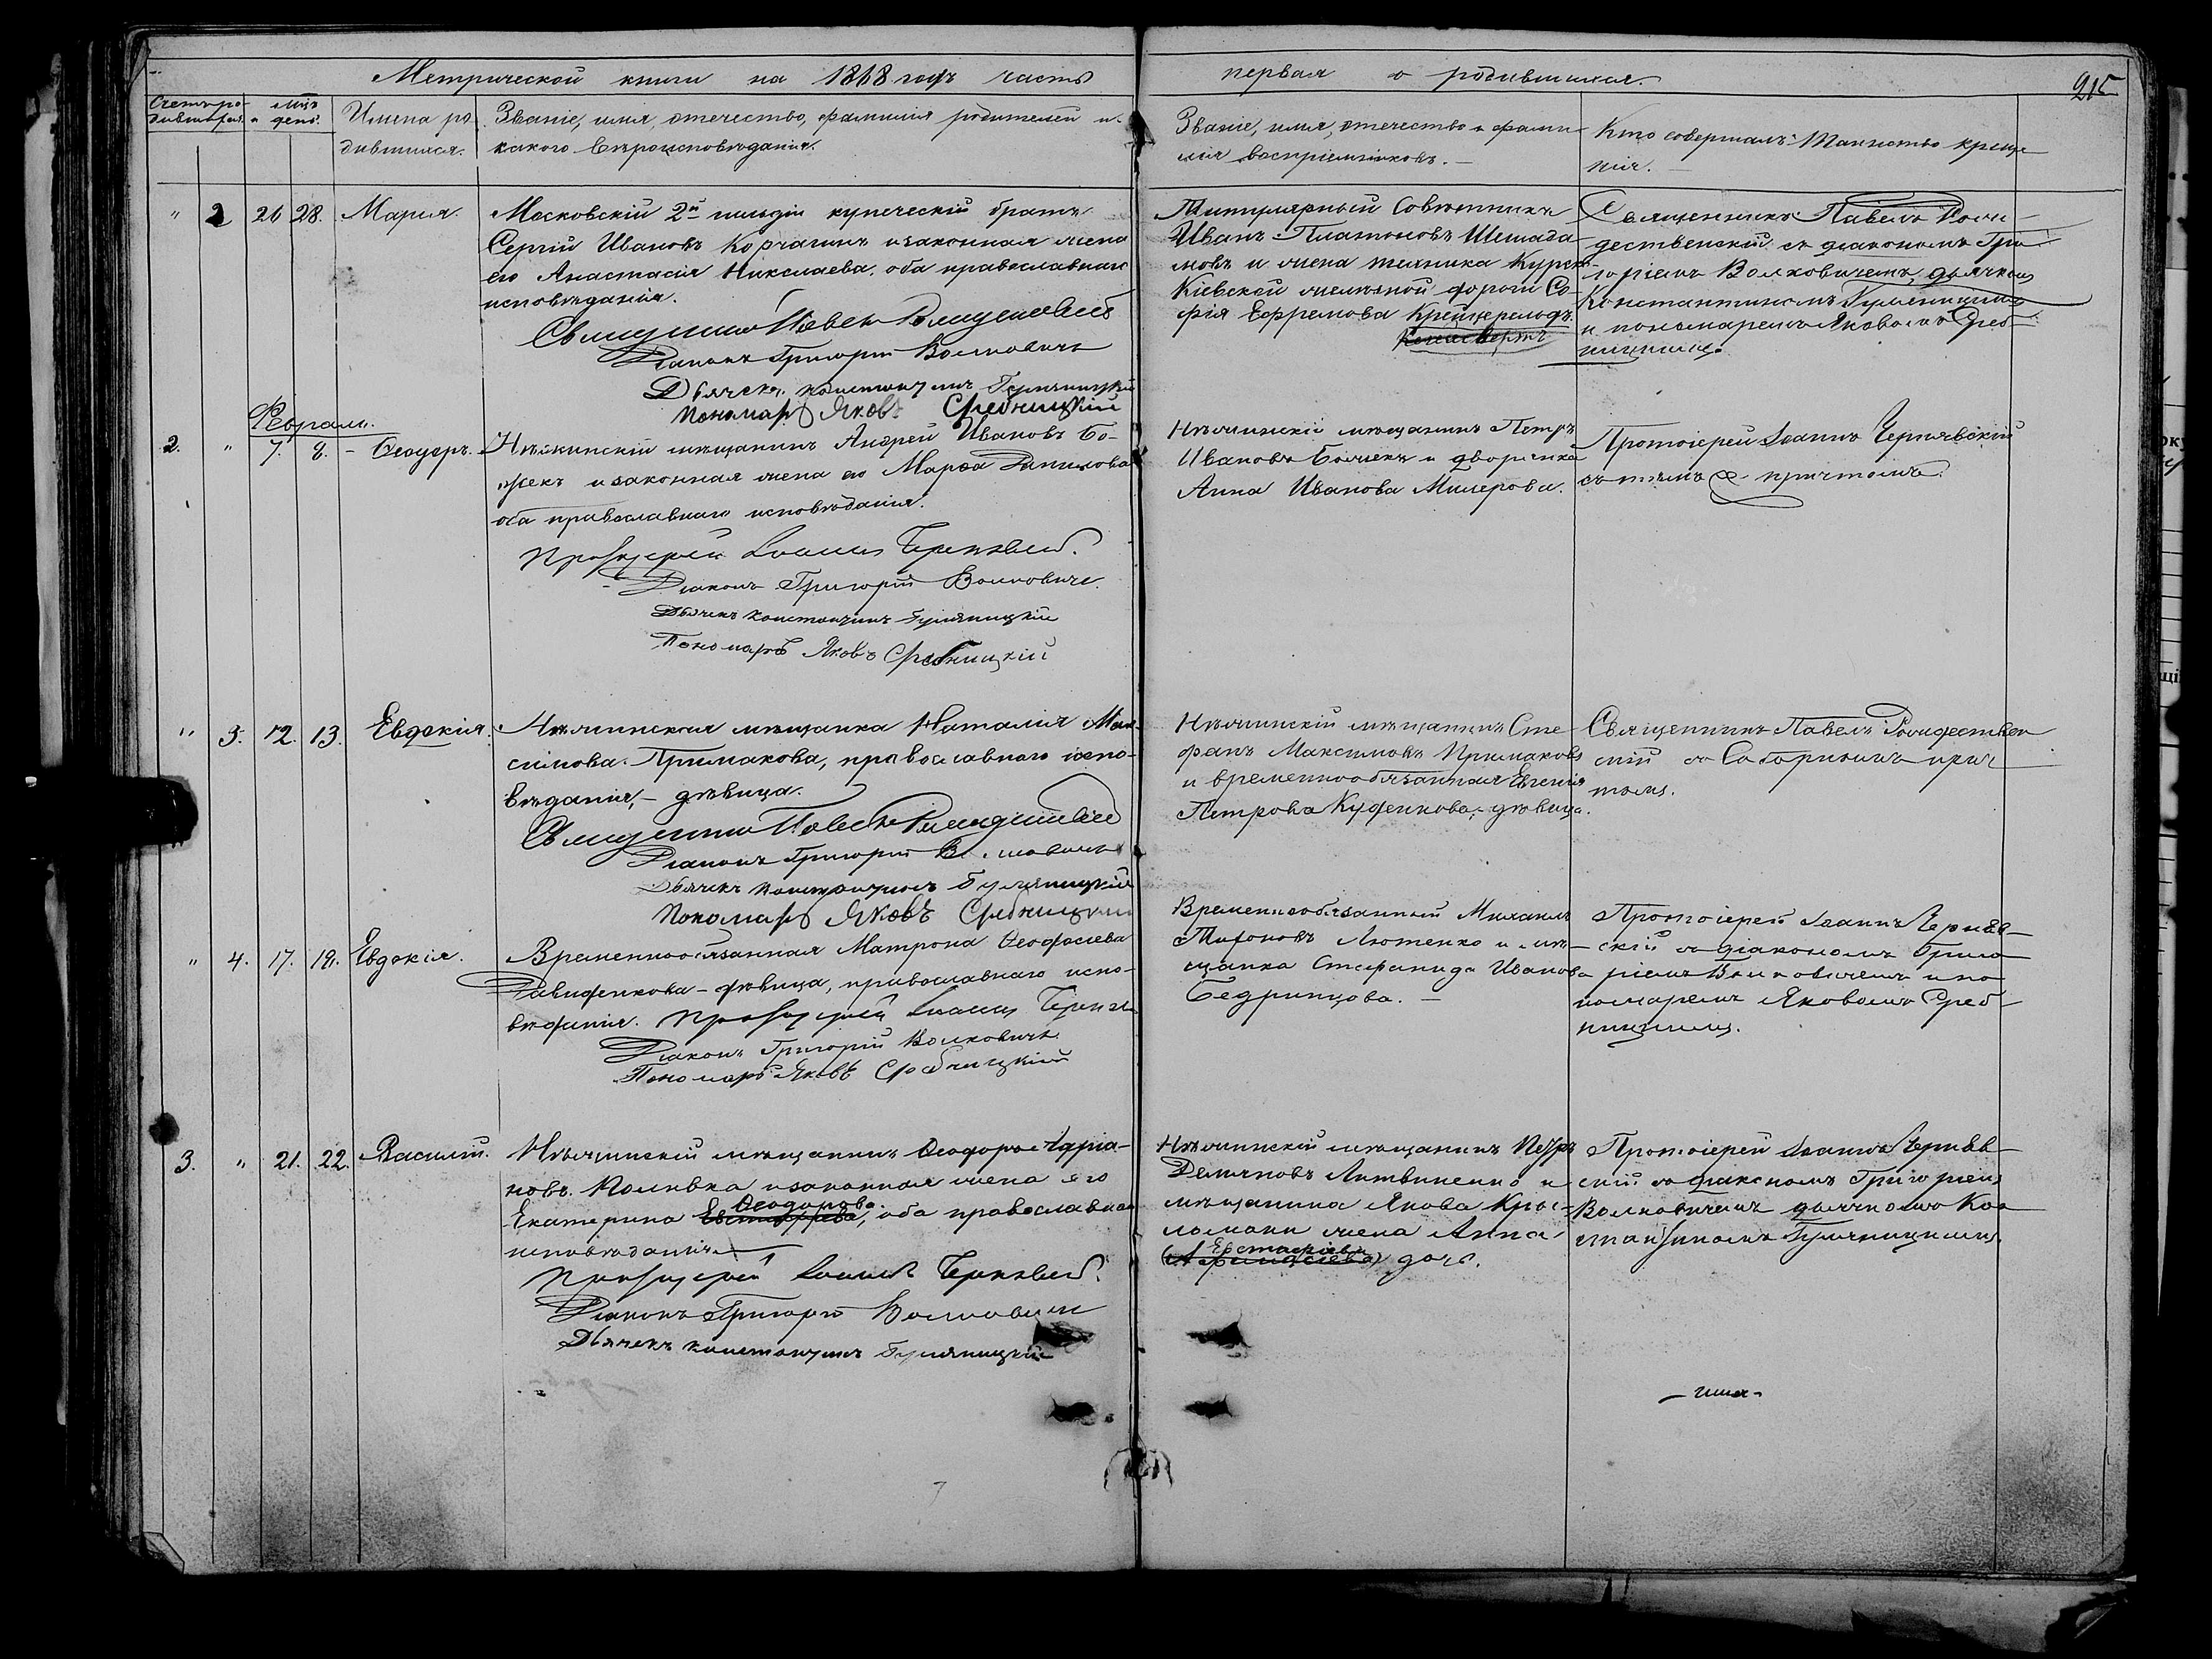 Метрической книги на 1868 годъ часть первая о родившихся.
215
Счетъ ро-
дившихся.
мѣц.
и день.
Имена ро-
дившихся.
Званіе, имя, отчество, фамилія родителей и
какого вѣроисповѣданія.
Званіе, имя, отчество и фами-
лія воспріемниковъ. —
Кто совершалъ Таинство креще-
нія. —
" 2 26 28. Марія.
Московскій 2й гильдіи купеческій братъ
Сергій Ивановъ Корчагинъ и законная жена
его Анастасія Николаева, оба православнаго
исповѣданія.
Священникъ Павелъ Рождественскій
Діаконъ Григорій Волковичъ
Дьячекъ Константинъ
Пономарь Яковъ Сребницкій
Титулярный Совѣтникъ
Иванъ Платоновъ
и жена техника Курско-
Кіевской желѣзной дороги Со-
фія Ефремова
Священникъ Павелъ Рож-
дественскій съ діакономъ Гри-
горіемъ Волковичемъ, дьячкомъ
Константиномъ
и пономаремъ Яковомъ Среб-
ницкимъ.
Февраль.
2. " 7. 8. - Ѳеодоръ.
Нѣжинскій мѣщанинъ Андрей Ивановъ Бо-
жекъ и законная жена его Марѳа Данилова
оба православнаго исповѣданія.
Протоіерей Іоаннъ Чернявскій.
Діаконъ Григорій Волковичъ.
Дьячекъ Константинъ
Пономарь Яковъ Сребницкій
Нѣжинскій мѣщанинъ Петръ
Ивановъ Божекъ и дворянка
Анна Иванова Милерова.
Протоіерей Іоаннъ Чернявскій
съ тѣмъ же причтомъ.
" 3. 12. 13. Евдокія.
Нѣжинская мѣщанка Наталія Мак-
симова Примакова, православнаго испо-
вѣданія, — дѣвица.
Священникъ Павелъ Рождественскій
Діаконъ Григорій Волковичъ
Дьячекъ Константинъ
Пономарь Яковъ Сребницкій
Нѣжинскій мѣщанинъ Сте-
фанъ Максимовъ Примаковъ
и временнообязанная Евгенія
Петрова Куфенкова, дѣвица.
Священникъ Павелъ Рождествен-
скій съ Соборнымъ прич-
томъ.
" 4. 17. 18. Евдокія.
Временнообязанная Матрона Ѳеофасіева
Давиденкова — дѣвица, православнаго испо-
вѣданія. Протоіерей Іоаннъ Черняв
Діаконъ Григорій Волковичъ
Пономарь Яковъ Сребницкій
Временнообязанный Михаилъ
Лютенко и мѣ-
щанка Стефанида Иванова
Бедринцова. —
Протоіерей Іоаннъ Черняв-
скій съ діакономъ Григо-
ріемъ Волковичемъ и по-
номаремъ Яковомъ Среб-
ницкимъ.
3. " 21. 22. Василій.
Нѣжинскій мѣщанинъ Ѳеодоръ
новъ Поливка и законная жена его
Ѳеодорова
Екатерина оба православнаго
исповѣданія.
Протоіерей Іоаннъ Чернявскій.
Діаконъ Григорій Волковичъ
Дьячекъ Константинъ
Нѣжинскій мѣщанинъ Петръ
Демьяновъ Литвиненко и
мѣщанина Якова
жена Анна
Евстафіева
дочь.
Протоіерей Іоаннъ Черняв-
скій съ діакономъ Григоріемъ
Волковичемъ дьячкомъ Кон-
стантиномъ